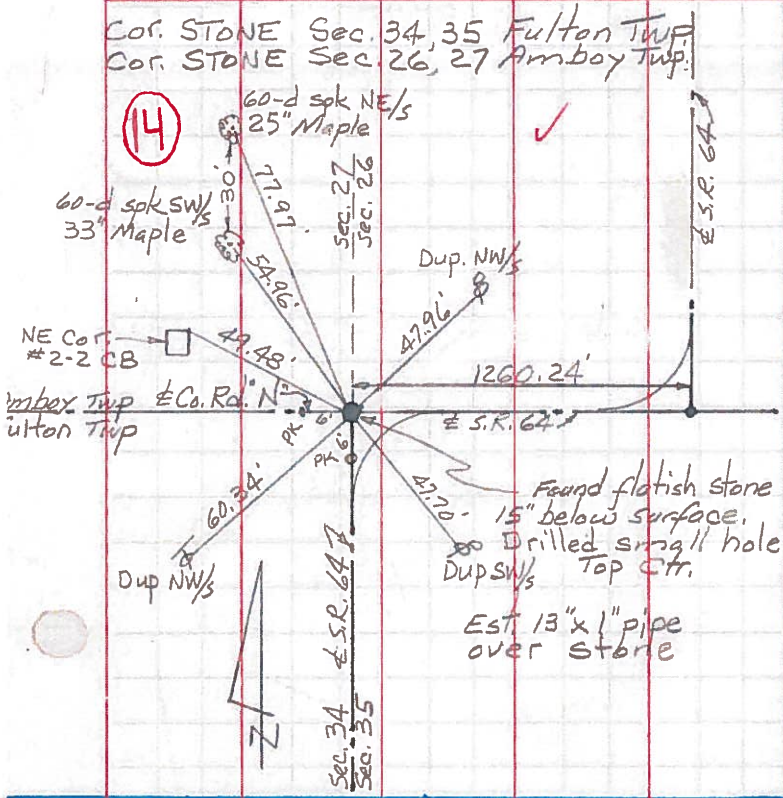 Cor. STONE Sec. 34, 35 Fulton Twp
Cor. STONE Sec. 26, 27 Amboy Twp.
14
60-d spk NE/s
25" Maple
30'
77.97
60-d spk SW/s
33" Maple
54.96'
Sec. 27
Sec. 26
℄ S.R. 64
Dup. NW/s
47.96'
NE Cor.
#2-2 CB
49.48'
1260.24'
mboy Twp
ulton Twp
℄ Co. Rd. "N"
PK 6'
PK 6'
℄ S.R. 64
60.34'
47.70'
Found flatish stone
15" below surface.
Drilled small hole
Top Ctr.
Dup NW/s
Dup SW/s
℄ S.R. 64
Est 13" x 1" pipe
over stone
N
Sec. 34
Sec. 35